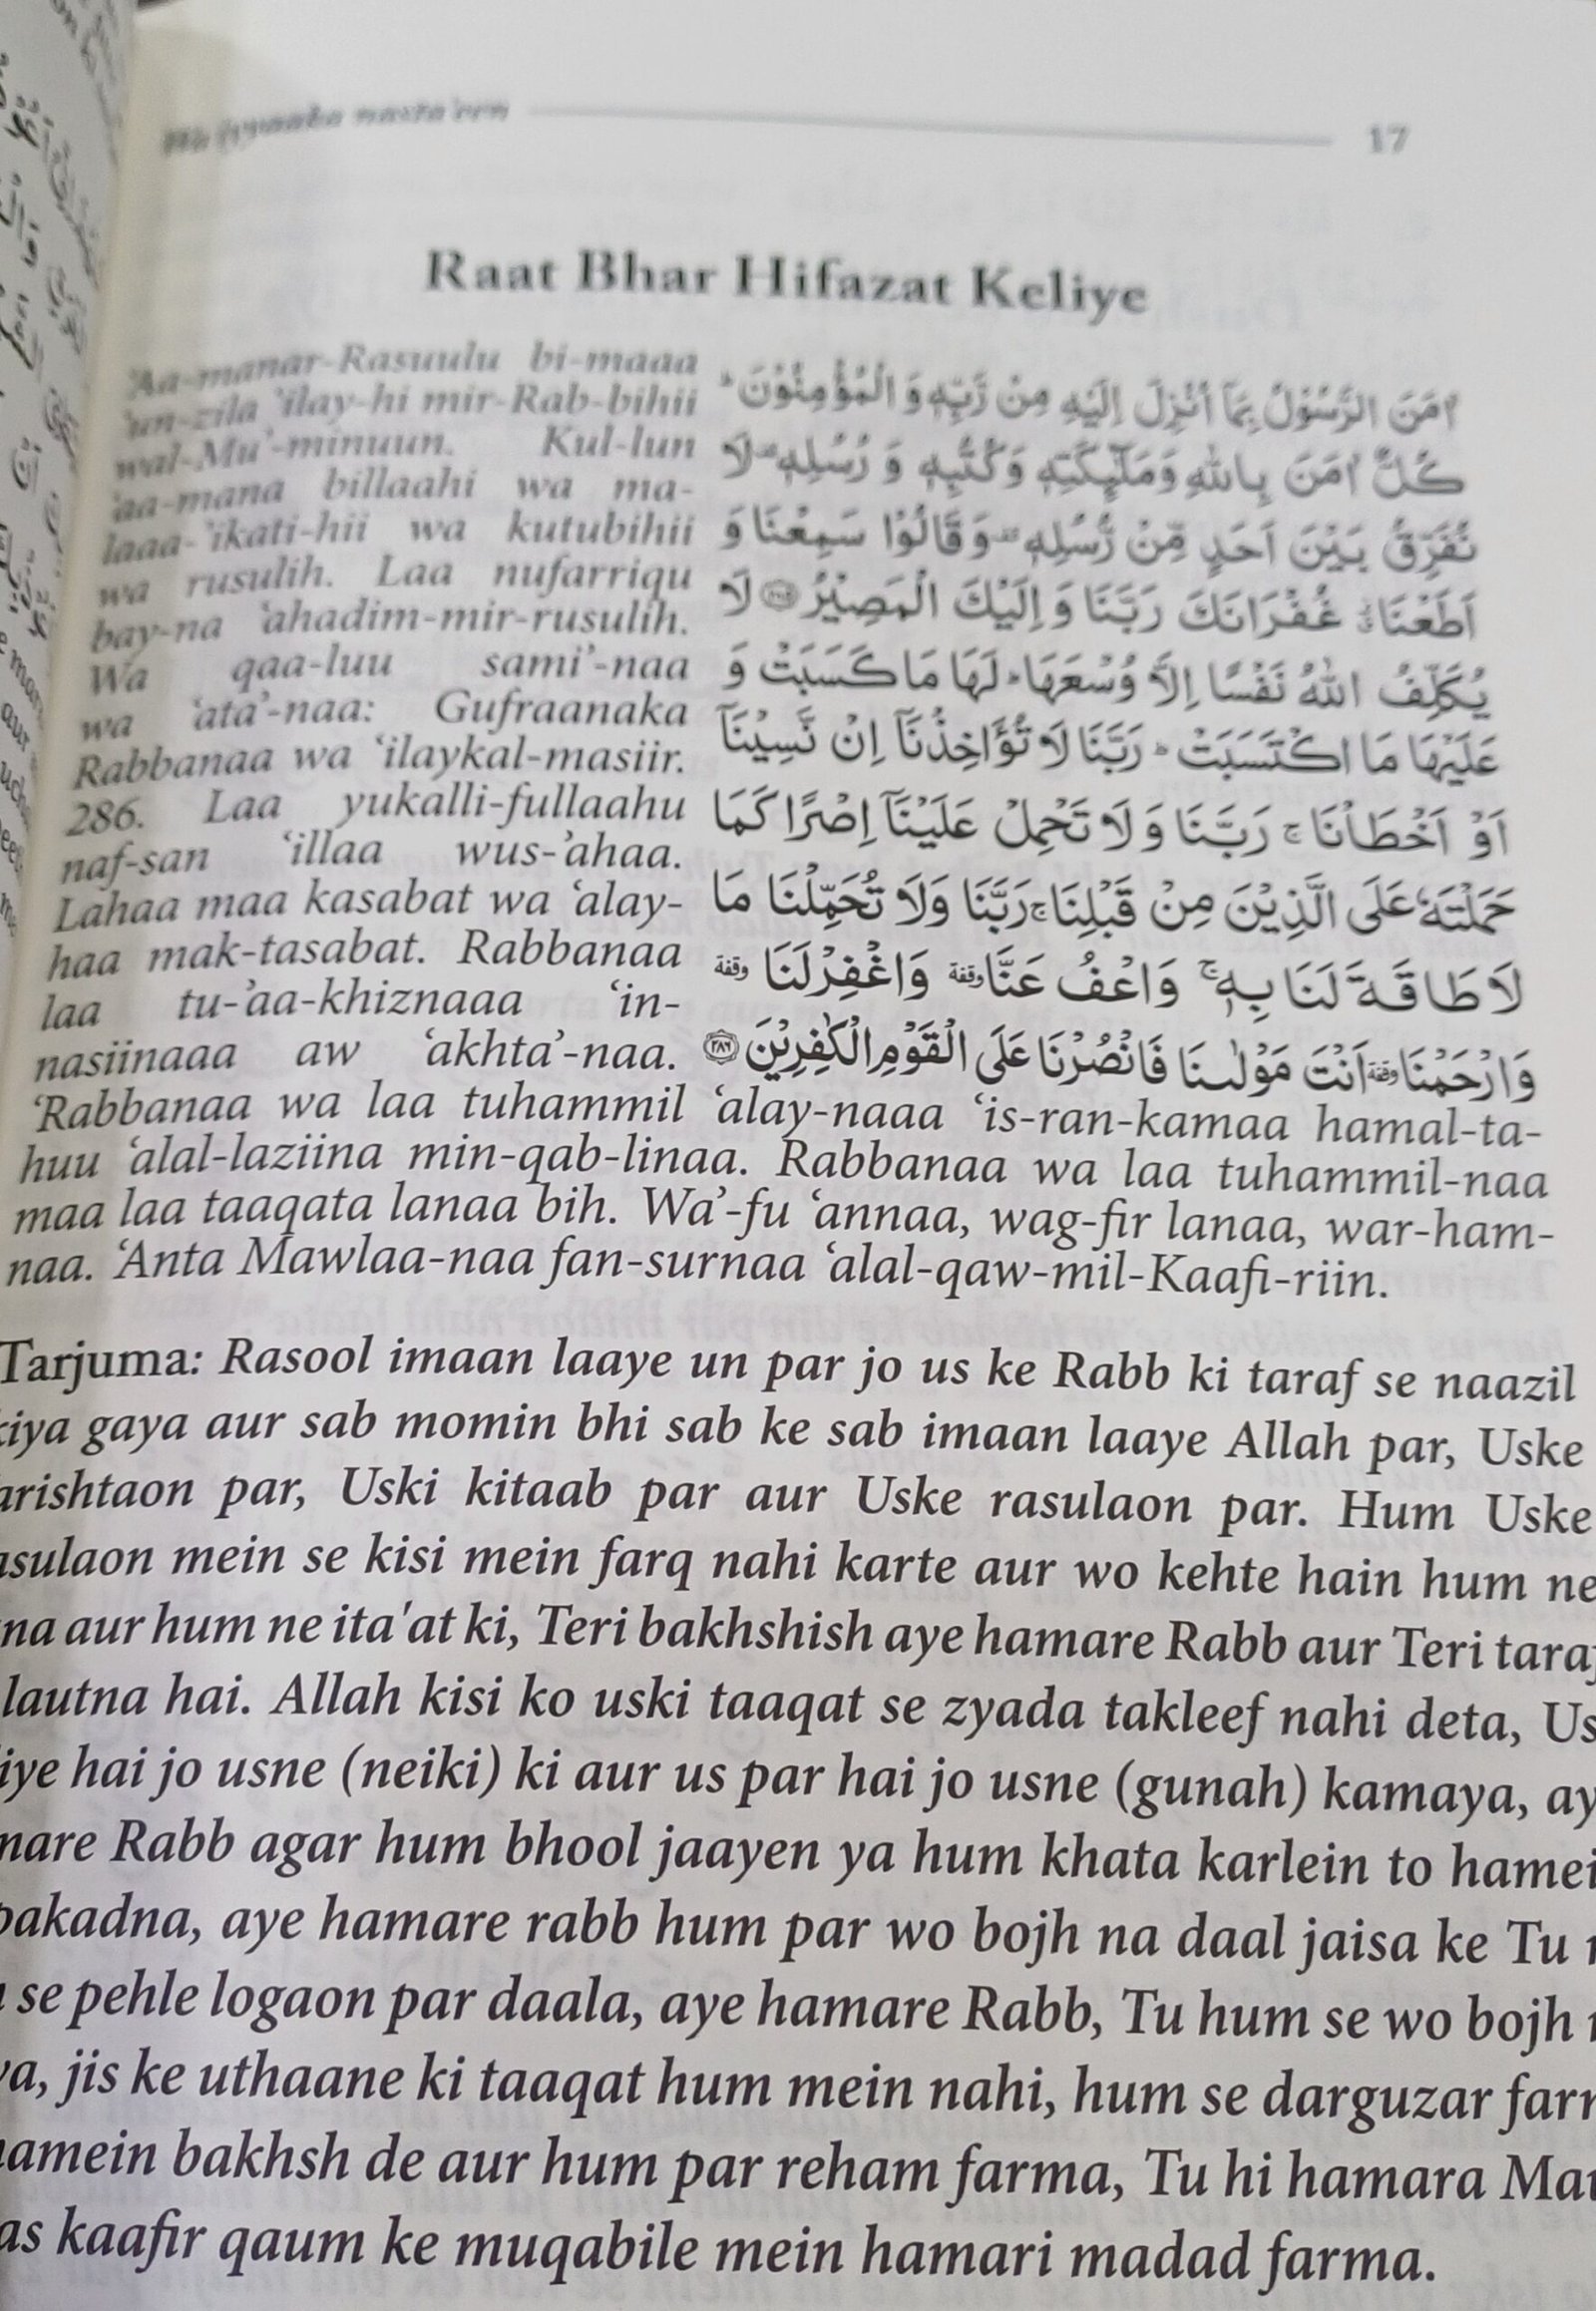 Wa iyyaaka nasta'een 17
Raat Bhar Hifazat Keliye
'Aa-manar-Rasuulu bi-maaa
'un-zila 'ilay-hi mir-Rab-bihii
wal-Mu'-minuun. Kul-lun
'aa-mana billaahi wa ma-
laaa-'ikati-hii wa kutubihii
wa rusulih. Laa nufarriqu
bay-na 'ahadim-mir-rusulih.
Wa qaa-luu sami'-naa
wa 'ata'-naa: Gufraanaka
Rabbanaa wa ‘ilaykal-masiir.
286. Laa yukalli-fullaahu
naf-san ‘illaa wus-’ahaa.
Lahaa maa kasabat wa ‘alay-
haa mak-tasabat. Rabbanaa
laa tu-’aa-khiznaaa ‘in-
nasiinaaa aw ‘akhta’-naa.
اٰمَنَ الرَّسُوْلُ بِمَآ اُنْزِلَ اِلَيْهِ مِنْ رَّبِّهٖ وَ الْمُؤْمِنُوْنَ ؕ
كُلٌّ اٰمَنَ بِاللّٰهِ وَمَلٰٓئِكَتِهٖ وَكُتُبِهٖ وَ رُسُلِهٖ ۫ لَا
نُفَرِّقُ بَيْنَ اَحَدٍ مِّنْ رُّسُلِهٖ ۫ وَ قَالُوْا سَمِعْنَا وَ
اَطَعْنَا ۫ۗ غُفْرَانَكَ رَبَّنَا وَ اِلَيْكَ الْمَصِيْرُ ﴿۲۸۵﴾ لَا
يُكَلِّفُ اللّٰهُ نَفْسًا اِلَّا وُسْعَهَا ؕ لَهَا مَا كَسَبَتْ وَ
عَلَيْهَا مَا اكْتَسَبَتْ ؕ رَبَّنَا لَا تُؤَاخِذْنَاۤ اِنْ نَّسِيْنَاۤ
اَوْ اَخْطَاْنَا ۚ رَبَّنَا وَ لَا تَحْمِلْ عَلَيْنَاۤ اِصْرًا كَمَا
حَمَلْتَهٗ عَلَى الَّذِيْنَ مِنْ قَبْلِنَا ۚ رَبَّنَا وَلَا تُحَمِّلْنَا مَا
لَا طَاقَةَ لَنَا بِهٖ ۚ وَاعْفُ عَنَّا وقفة وَاغْفِرْلَنَا وقفة
وَارْحَمْنَا وقفة اَنْتَ مَوْلٰىنَا فَانْصُرْنَا عَلَى الْقَوْمِ الْكٰفِرِيْنَ ﴿۲۸۶﴾
‘Rabbanaa wa laa tuhammil ‘alay-naaa ‘is-ran-kamaa hamal-ta-
huu ‘alal-laziina min-qab-linaa. Rabbanaa wa laa tuhammil-naa
maa laa taaqata lanaa bih. Wa’-fu ‘annaa, wag-fir lanaa, war-ham-
naa. ‘Anta Mawlaa-naa fan-surnaa ‘alal-qaw-mil-Kaafi-riin.
Tarjuma: Rasool imaan laaye un par jo us ke Rabb ki taraf se naazil
kiya gaya aur sab momin bhi sab ke sab imaan laaye Allah par, Uske
arishtaon par, Uski kitaab par aur Uske rasulaon par. Hum Uske
asulaon mein se kisi mein farq nahi karte aur wo kehte hain hum ne
na aur hum ne ita'at ki, Teri bakhshish aye hamare Rabb aur Teri taraf
lautna hai. Allah kisi ko uski taaqat se zyada takleef nahi deta, Us
iye hai jo usne (neiki) ki aur us par hai jo usne (gunah) kamaya, ay
mare Rabb agar hum bhool jaayen ya hum khata karlein to hamei
pakadna, aye hamare rabb hum par wo bojh na daal jaisa ke Tu
se pehle logaon par daala, aye hamare Rabb, Tu hum se wo bojh
ya, jis ke uthaane ki taaqat hum mein nahi, hum se darguzar farm
hamein bakhsh de aur hum par reham farma, Tu hi hamara Mau
as kaafir qaum ke muqabile mein hamari madad farma.